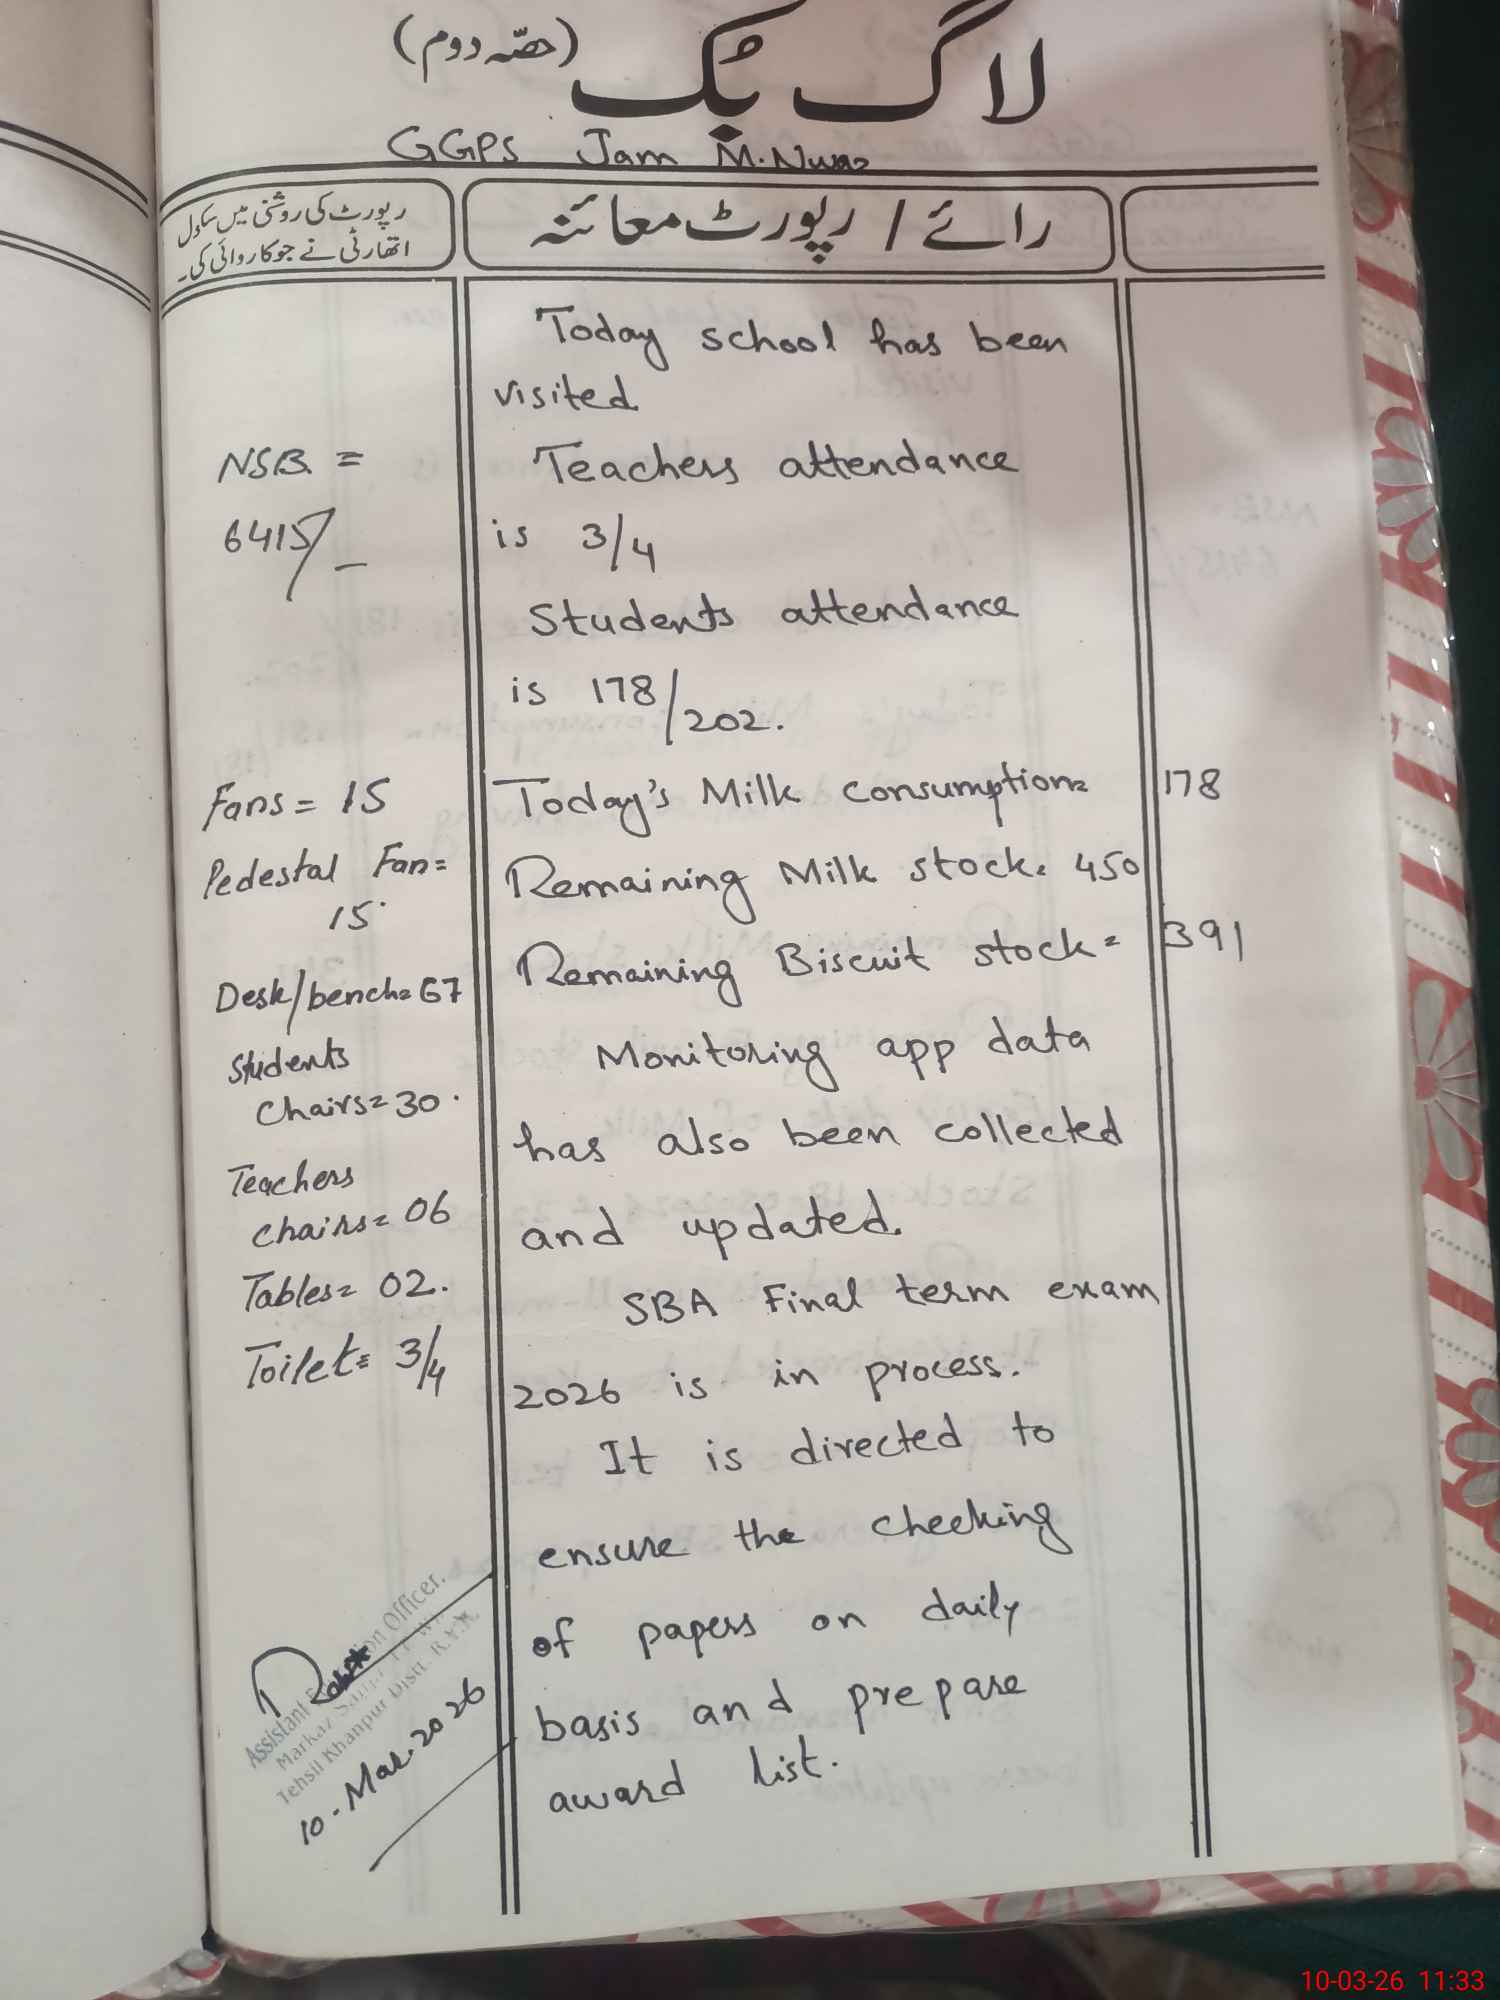 لاگ بک (حصّہ دوم)
GGPS Jam M.Nwaz
رپورٹ کی روشنی میں سکول
اتھارٹی نے جو کاروائی کی۔
رائے / رپورٹ معائنہ
Today school has been
visited
Teachers attendance
is 3/4
Students attendance
is 178/202.
Today's Milk consumption= 178
Remaining Milk stock= 450
Remaining Biscuit stock= 391
Monitoring app data
has also been collected
and updated.
SBA Final term exam
2026 is in process.
It is directed to
ensure the checking
of papers on daily
basis and prepare
award list.
NSB =
6415/_
Fans= 15
Pedestal Fan=
15
Desk/bench= 67
Students
Chairs= 30.
Teachers
chairs= 06
Tables= 02.
Toilet= 3/4
Assistant Education Officer.
Markaz
Tehsil Khanpur Distt. R.Y.K
10-Mar.2026
10-03-26 11:33